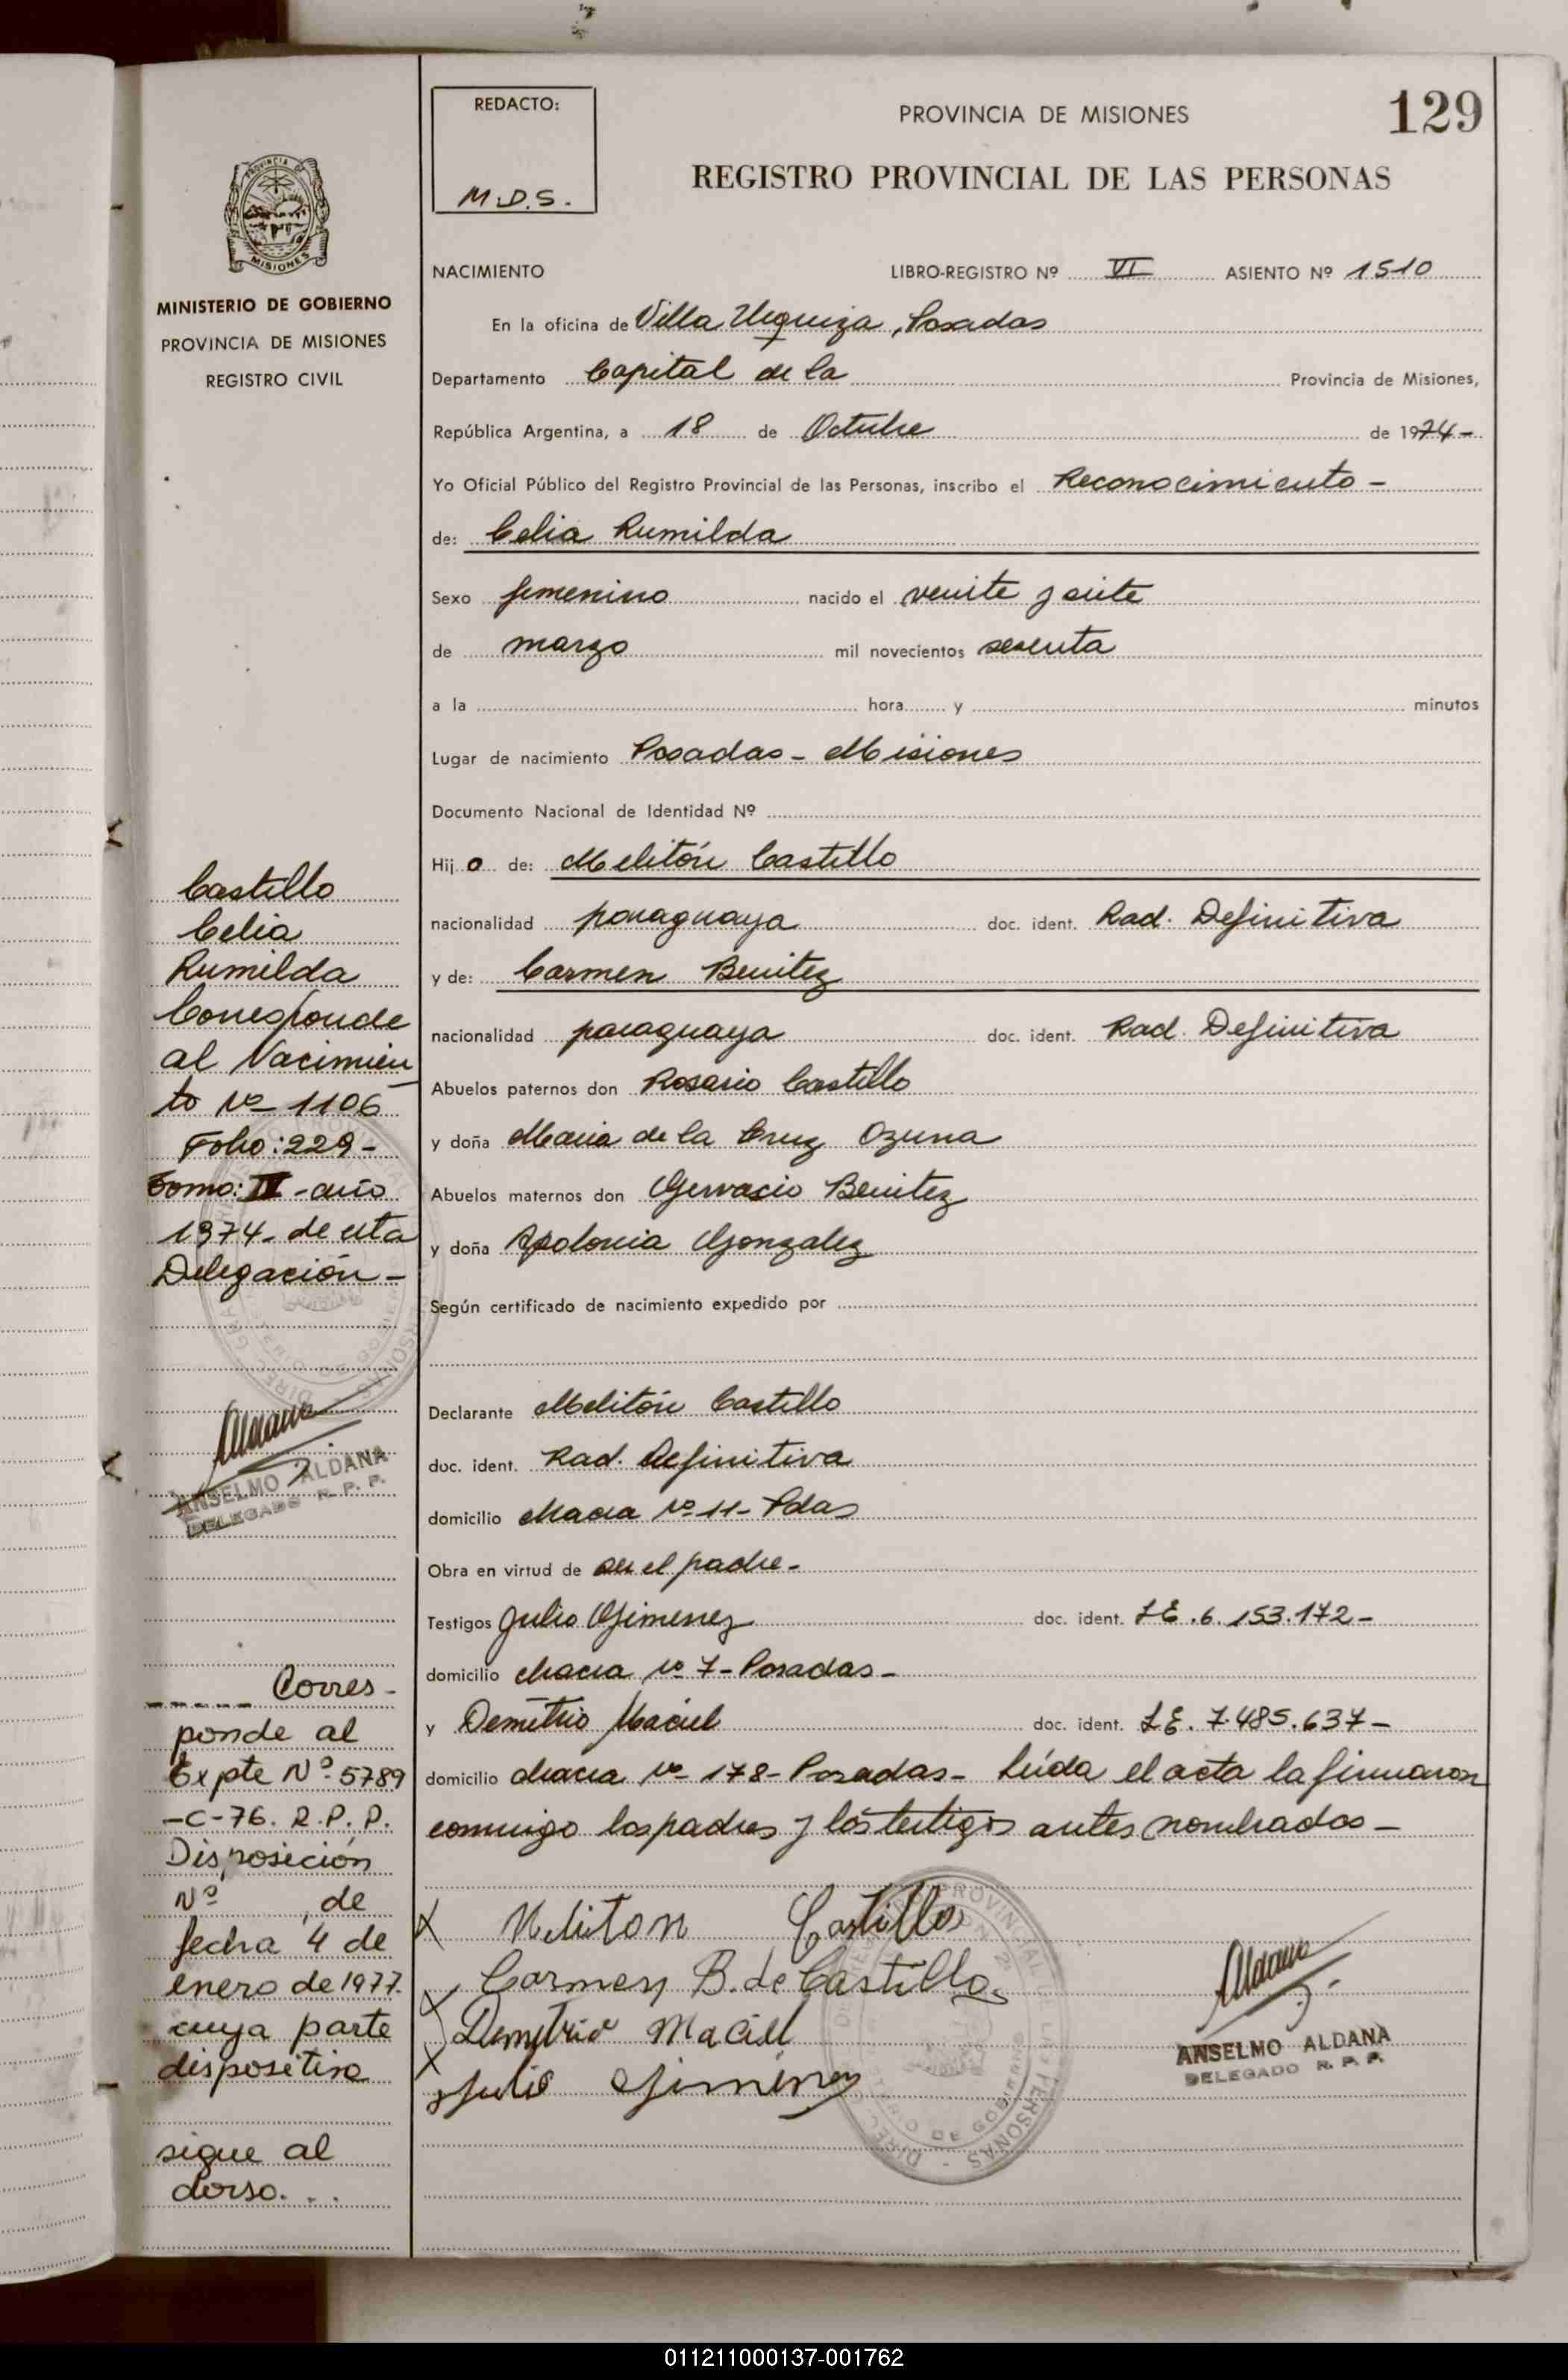 129
REDACTO:
M.D.S.
PROVINCIA DE MISIONES
REGISTRO PROVINCIAL DE LAS PERSONAS
MINISTERIO DE GOBIERNO
PROVINCIA DE MISIONES
REGISTRO CIVIL
NACIMIENTO LIBRO-REGISTRO Nº VI ASIENTO Nº 1510
En la oficina de Villa Urquiza, Posadas
Departamento Capital de la Provincia de Misiones,
República Argentina, a 18 de Octubre de 1974-
Yo Oficial Público del Registro Provincial de las Personas, inscribo el Reconocimiento -
de: Celia Rumilda
Sexo femenino nacido el veinte y siete
de marzo mil novecientos sesenta
a la hora y minutos
Lugar de nacimiento Posadas - Misiones
Documento Nacional de Identidad Nº
Hij a de: Melitón Castillo
nacionalidad paraguaya doc. ident. Rad. Definitiva
y de: Carmen Benitez
nacionalidad paraguaya doc. ident. Rad. Definitiva
Abuelos paternos don Rosario Castillo
y doña Maria de la Cruz Ozuna
Abuelos maternos don Gervacio Benitez
y doña Apolonia Gonzalez
Según certificado de nacimiento expedido por
Declarante Melitón Castillo
doc. ident. Rad. Definitiva
domicilio chacra Nº 11- Pdas
Obra en virtud de ser el padre-
Testigos Julio Gimenez doc. ident. L.E. 6.153.172-
domicilio chacra Nº 7- Posadas-
y Demetrio Maciel doc. ident. L.E. 7.485.637-
domicilio chacra Nº 178- Posadas- Leída el acta la firmaron
conmigo los padres y los testigos antes nombrados-
X Meliton Castillo
X Carmen B. de Castillo
Demetrio Maciel
X Julio Gimenez
Aldana
ANSELMO ALDANA
DELEGADO R. P. P.
Castillo
Celia
Rumilda
Corresponde
al Nacimien
to Nº 1106
Folio: 229-
Tomo: IV - año
1974- de esta
Delegación-
Aldana
ANSELMO ALDANA
DELEGADO R. P. P.
Corres-
ponde al
Expte Nº 5789
-C-76. R.P.P.
Disposición
Nº , de
fecha 4 de
enero de 1977.
cuya parte
dispositiva
sigue al
dorso...
011211000137-001762